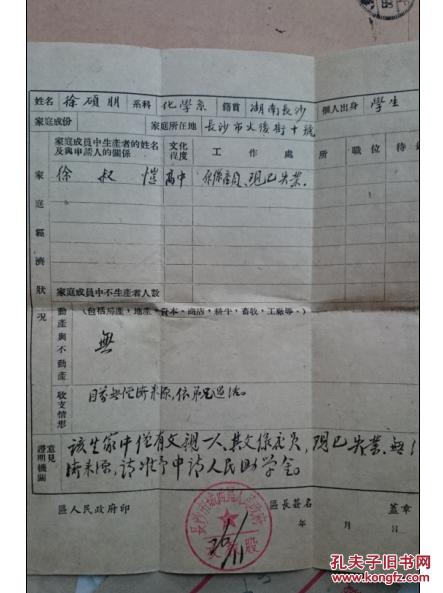 姓名 徐碩朋 系科 化學系 籍貫 湖南長沙 個人出身 學生
家庭成份 家庭所在地 長沙市火後街十號
家庭經濟狀況
家庭成員中生產者的姓名及與申請人的關係 文化程度 工作處所 職位 待
徐叔 高中 現已失業
家庭成員中不生產者人數
動產與不動產 (包括房產,地產,資本,商店,耕牛,畜牧,工廠等。)
無
收支情形 目前無經濟來源,依弟兄過活。
證明機關意見
該生家中僅有父親一人,其父係 員,現已失業,無
濟來源,請准予申請人民助學金。
區人民政府印 區長簽名 蓋章
年 月 日
長沙市
股
26/11
孔夫子旧书网
www.kongfz.com